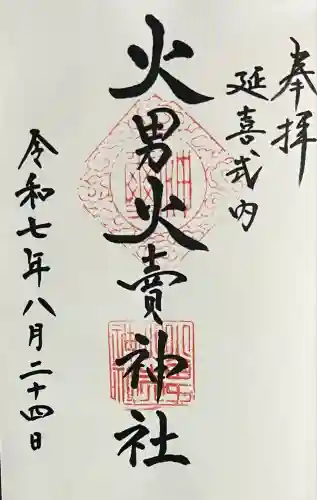 奉拝
延喜式内
火男火賣神社
令和七年八月二十四日